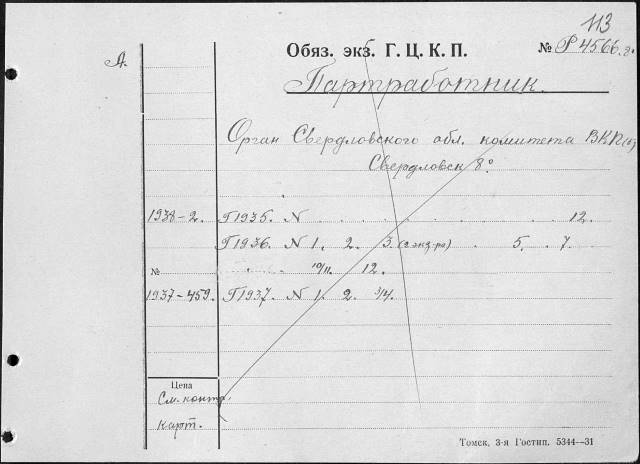 113
Обяз. экз. Г. Ц. К. П. № Р 4566.
А.
Партработник.
Орган Свердловского обл. комитета ВКП(б)
Свердловск 8°
1938–2. Г1935. N . . . . . . . . 12.
Г1936. N 1. 2. 3. (2 экз-ра) . 5. 7.
№ 10/11. 12.
1937–459. Г1937. N 1. 2. 3/4.
Цена
См. контр.
карт.
Томск, 3-я Гостип. 5344—31